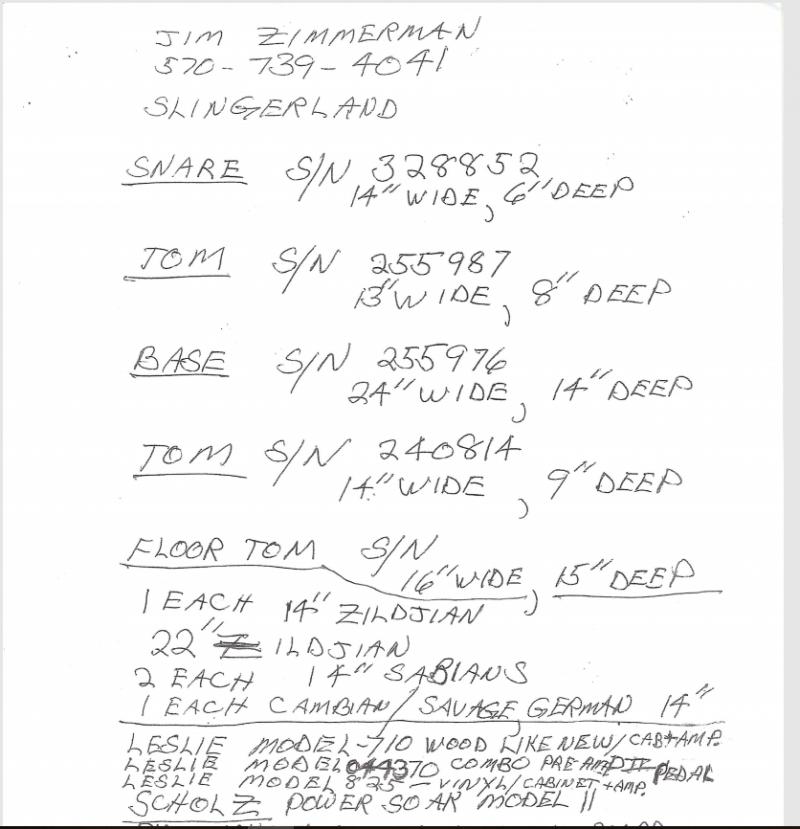 JIM ZIMMERMAN
570-739-4041
SLINGERLAND
SNARE S/N 328852
14" WIDE, 6" DEEP
TOM S/N 255987
13" WIDE, 8" DEEP
BASE S/N 255976
24" WIDE, 14" DEEP
TOM S/N 240814
14" WIDE, 9" DEEP
FLOOR TOM S/N
16" WIDE, 15" DEEP
1 EACH 14" ZILDJIAN
22" ZILDJIAN
2 EACH 14" SABIANS
1 EACH CAMBIAN/SAVAGE GERMAN 14"
LESLIE MODEL-710 WOOD LIKE NEW/CAB+AMP.
LESLIE MODEL COMBO PRE-AMP II PEDAL
LESLIE MODEL 825 - VINYL/CABINET+AMP.
SCHOLZ POWER SOAK MODEL II